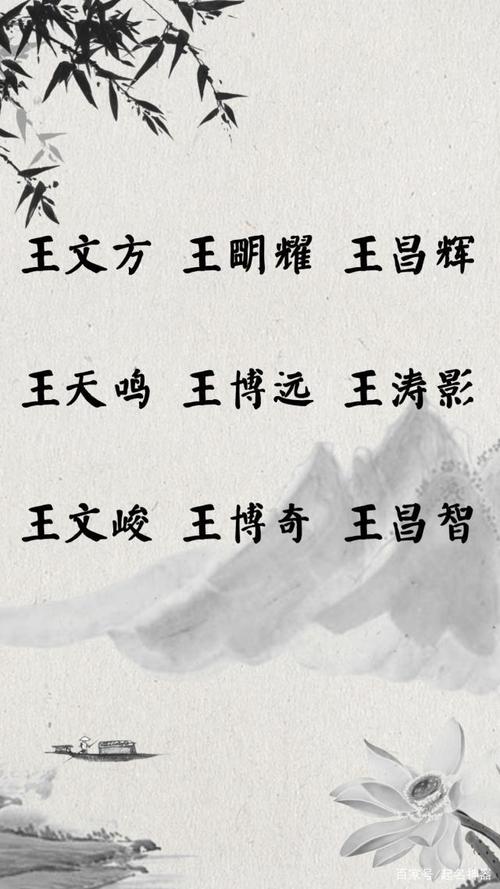 王文方 王明耀 王昌辉
王天鸣 王博远 王涛影
王文峻 王博奇 王昌智
百家号/起名神器